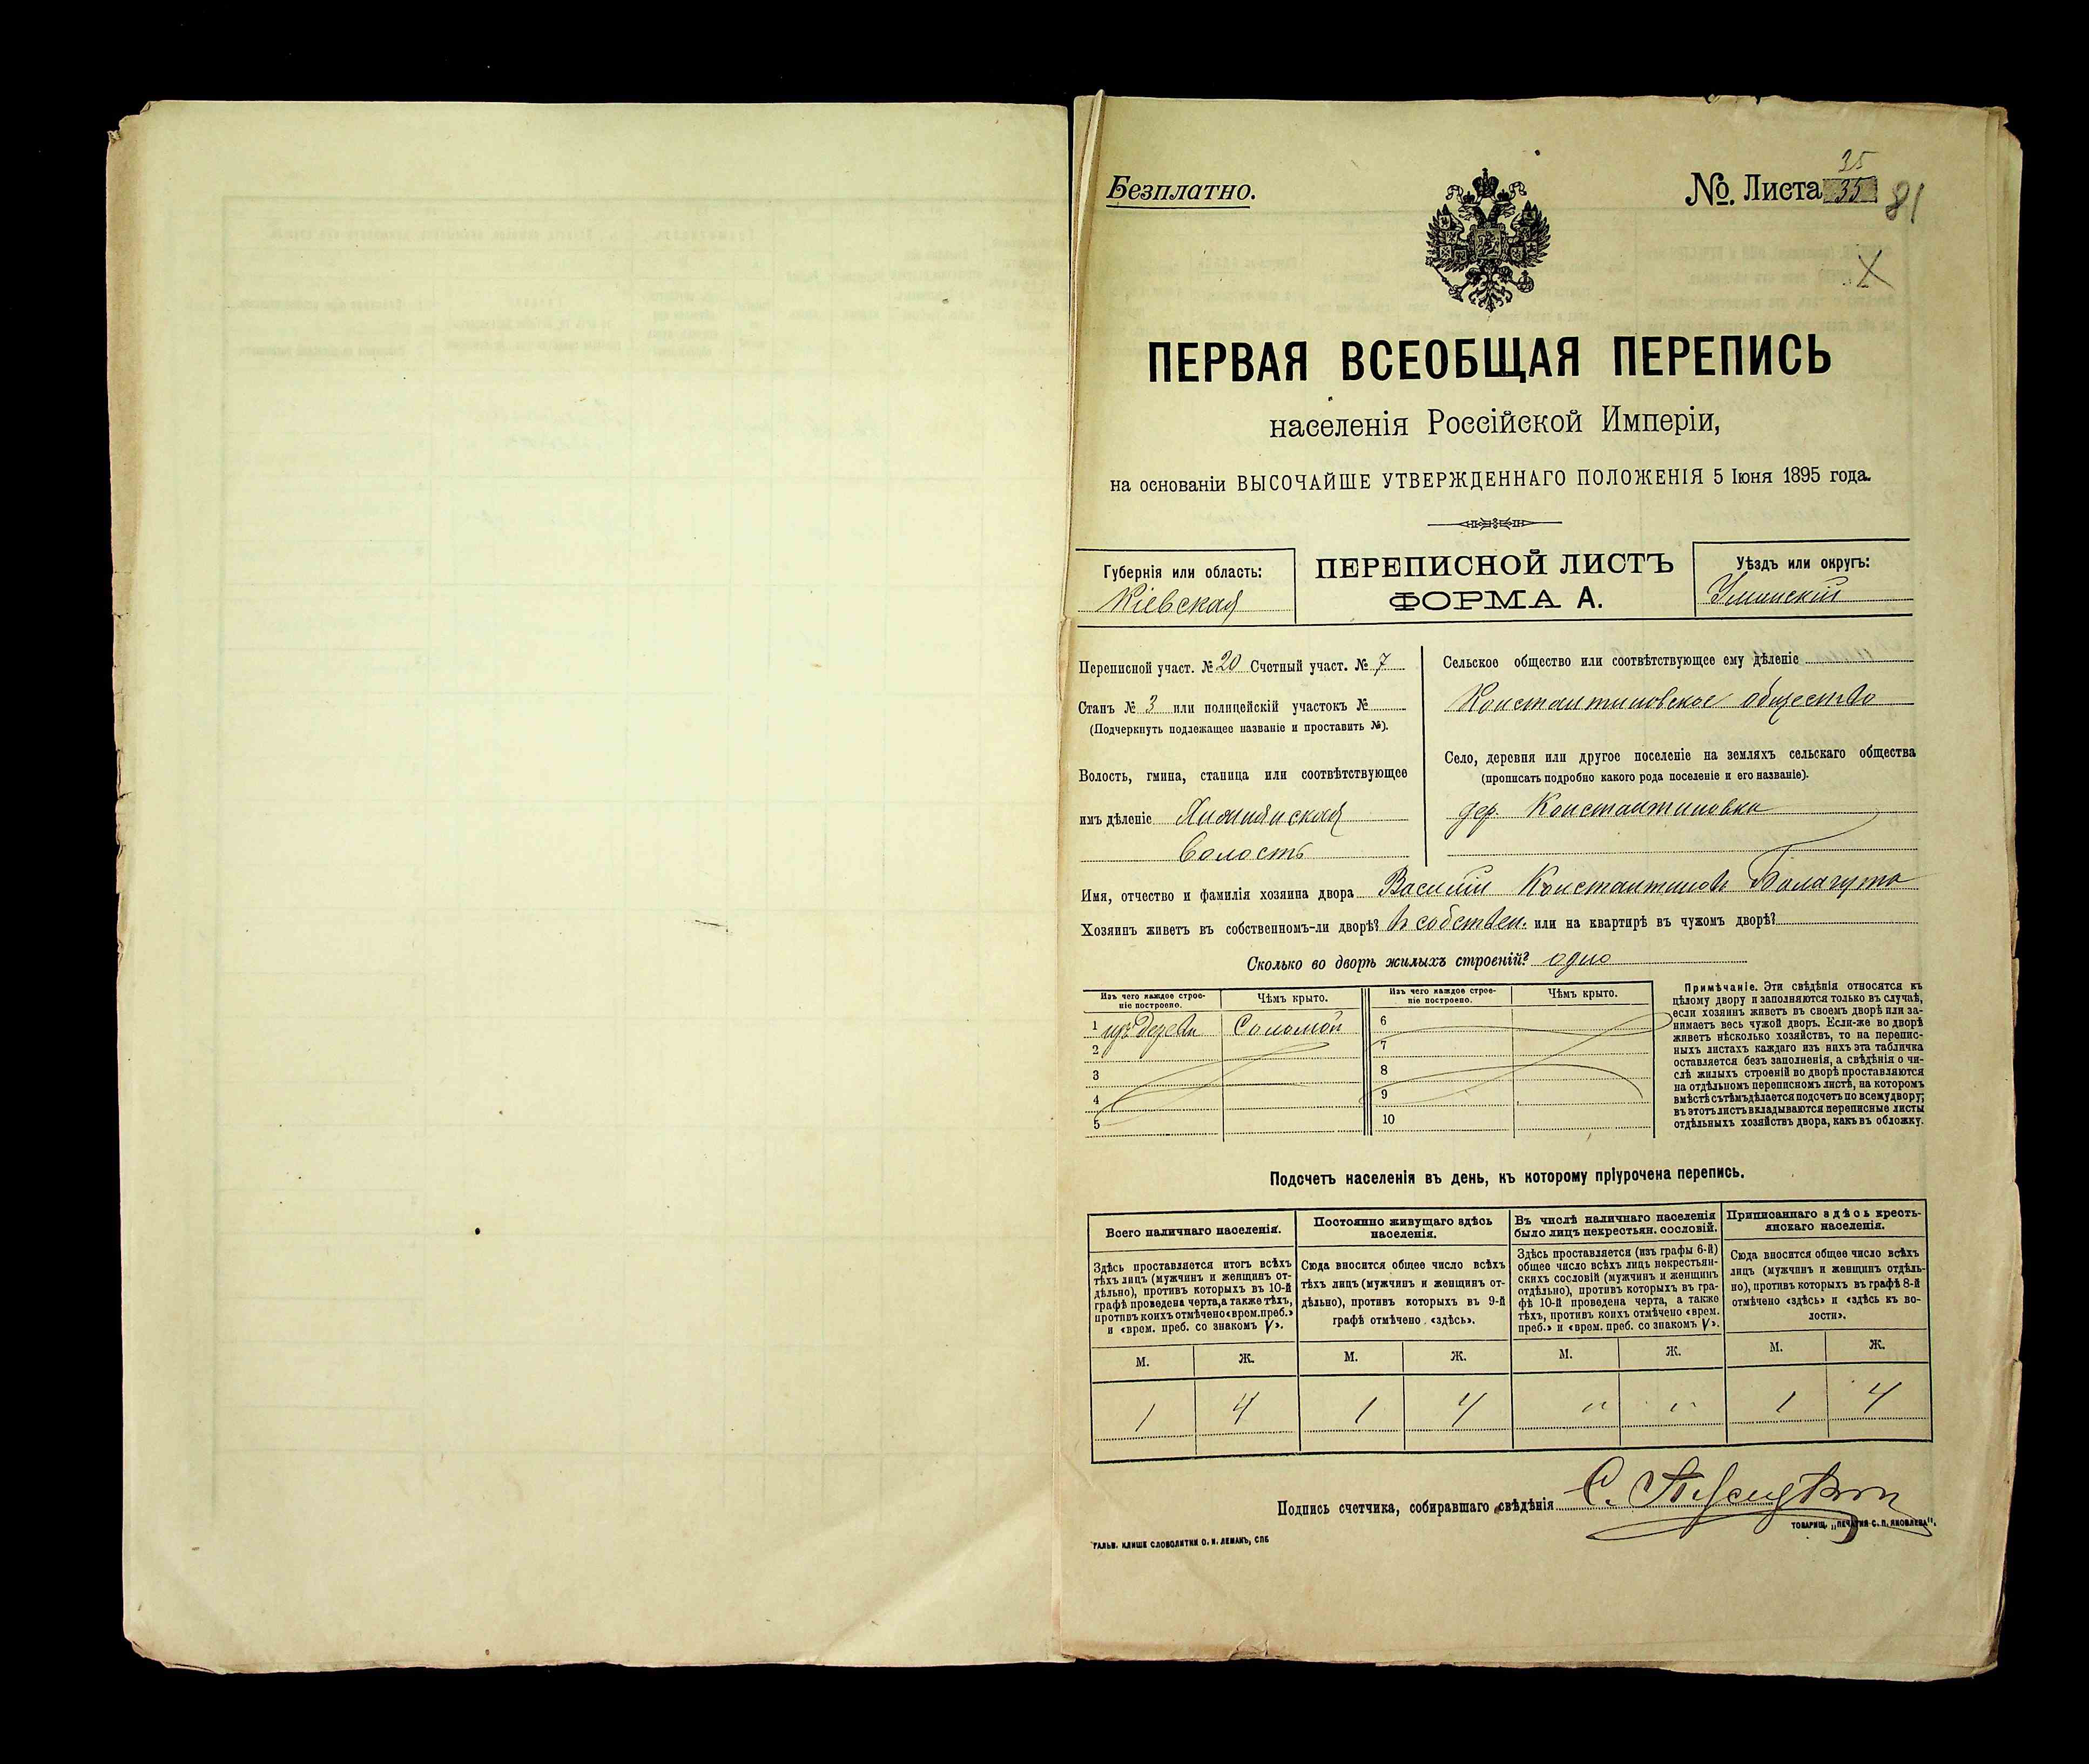 Безплатно.
№. Листа 35
35
81
X
ПЕРВАЯ ВСЕОБЩАЯ ПЕРЕПИСЬ
населенія Россійской Имперіи,
на основаніи ВЫСОЧАЙШЕ УТВЕРЖДЕННАГО ПОЛОЖЕНІЯ 5 Іюня 1895 года.
Губернія или область:
Кіевская
ПЕРЕПИСНОЙ ЛИСТЪ
ФОРМА А.
Уѣздъ или округъ:
Уманскій
Переписной участ. № 20 Счетный участ. № 7
Станъ № 3 или полицейскій участокъ №
(Подчеркнуть подлежащее названіе и проставить №).
Волость, гмина, станица или соотвѣтствующее
имъ дѣленіе
волость
Сельское общество или соотвѣтствующее ему дѣленіе
Константиновское общество
Село, деревня или другое поселеніе на земляхъ сельскаго общества
(прописать подробно какого рода поселеніе и его названіе).
дер. Константиновка
Имя, отчество и фамилія хозяина двора Василій Константиновъ Балагута
Хозяинъ живетъ въ собственномъ-ли дворѣ? в собствен. или на квартирѣ въ чужомъ дворѣ?
Сколько во дворѣ жилыхъ строеній? одно
Изъ чего каждое строе-
ніе построено.
Чѣмъ крыто.
Изъ чего каждое строе-
ніе построено.
Чѣмъ крыто.
1 изъ дерева Соломой
2
3
4
5
6
7
8
9
10
Примѣчаніе. Эти свѣдѣнія относятся къ
цѣлому двору и заполняются только въ случаѣ,
если хозяинъ живетъ въ своемъ дворѣ или за-
нимаетъ весь чужой дворъ. Если-же во дворѣ
живетъ нѣсколько хозяйствъ, то на перепис-
ныхъ листахъ каждаго изъ нихъ эта табличка
оставляется безъ заполненія, а свѣдѣнія о чи-
слѣ жилыхъ строеній во дворѣ проставляются
на отдѣльномъ переписномъ листѣ, на которомъ
вмѣстѣ съ тѣмъ дѣлается подсчетъ по всему двору;
въ этотъ листъ вкладываются переписные листы
отдѣльныхъ хозяйствъ двора, какъ въ обложку.
Подсчетъ населенія въ день, къ которому пріурочена перепись.
Всего наличнаго населенія.
Здѣсь проставляется итогъ всѣхъ
тѣхъ лицъ (мужчинъ и женщинъ от-
дѣльно), противъ которыхъ въ 10-й
графѣ проведена черта, а также тѣхъ,
противъ коихъ отмѣчено «врем. преб.»
и «врем. преб. со знакомъ V».
Постоянно живущаго здѣсь
населенія.
Сюда вносится общее число всѣхъ
тѣхъ лицъ (мужчинъ и женщинъ от-
дѣльно), противъ которыхъ въ 9-й
графѣ отмѣчено «здѣсь».
Въ числѣ наличнаго населенія
было лицъ некрестьян. сословій.
Здѣсь проставляется (изъ графы 6-й)
общее число всѣхъ лицъ некрестьян-
скихъ сословій (мужчинъ и женщинъ
отдѣльно), противъ которыхъ въ гра-
фѣ 10-й проведена черта, а также
тѣхъ, противъ коихъ отмѣчено «врем.
преб.» и «врем. преб. со знакомъ V».
Приписаннаго здѣсь кресть-
янскаго населенія.
Сюда вносится общее число всѣхъ
лицъ (мужчинъ и женщинъ отдѣль-
но), противъ которыхъ въ графѣ 8-й
отмѣчено «здѣсь» и «здѣсь къ во-
лости».
М. Ж. М. Ж. М. Ж. М. Ж.
1 4 1 4 " " 1 4
Подпись счетчика, собиравшаго свѣдѣнія С.
ГАЛЬВ. КЛИШЕ СЛОВОЛИТНИ О. И. ЛЕМАНЪ, СПБ
ТОВАРИЩ. „ПЕЧАТНЯ С. П. ЯКОВЛЕВА".